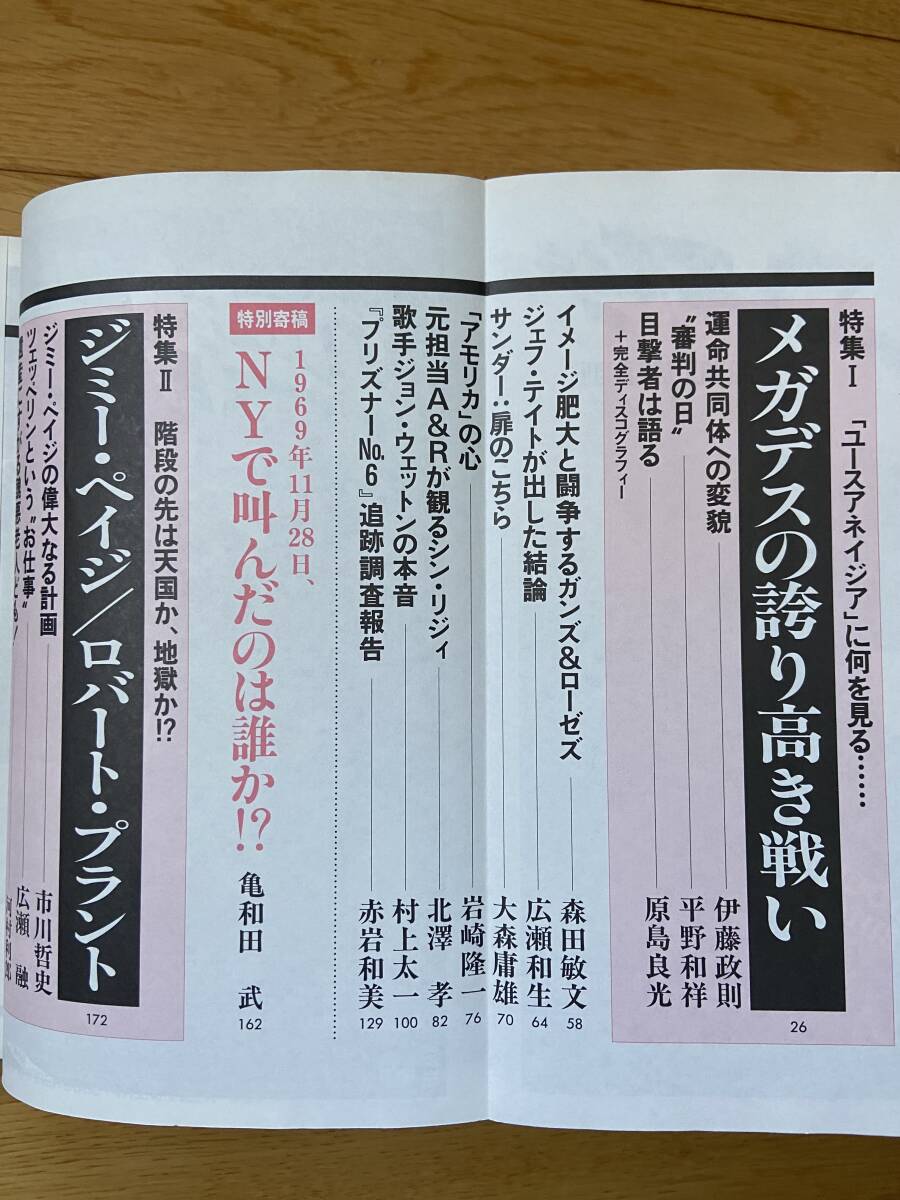 特集Ⅰ 「ユースアネイジア」に何を見る……
メガデスの誇り高き戦い
26
運命共同体への変貌 伊藤政則
〝審判の日〟 平野和祥
目撃者は語る 原島良光
+完全ディスコグラフィー
イメージ肥大と闘争するガンズ&ローゼズ 森田敏文 58
ジェフ・テイトが出した結論 広瀬和生 64
サンダー:扉のこちら 大森庸雄 70
「アモリカ」の心 岩崎隆一 76
元担当A&Rが観るシン・リジィ 北澤 孝 82
歌手ジョン・ウェットンの本音 村上太一 100
『プリズナーNo.6』追跡調査報告 赤岩和美 129
特別寄稿
1969年11月28日、
NYで叫んだのは誰か!? 亀和田 武 162
特集Ⅱ 階段の先は天国か、地獄か!?
ジミー・ペイジ/ロバート・プラント
172
ジミー・ペイジの偉大なる計画 市川哲史
ツェッペリンという〝お仕事〟 広瀬 融